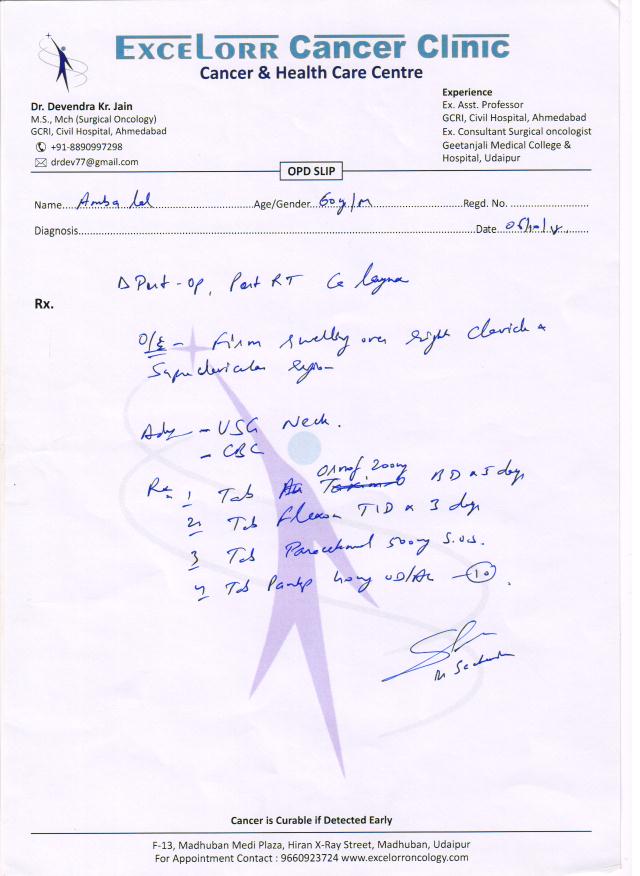 EXCELORR CANCER CLINIC
Cancer & Health Care Centre
Dr. Devendra Kr. Jain
M.S., Mch (Surgical Oncology)
GCRI, Civil Hospital, Ahmedabad
+91-8890997298
drdev77@gmail.com
Experience
Ex. Asst. Professor
GCRI, Civil Hospital, Ahmedabad
Ex. Consultant Surgical oncologist
Geetanjali Medical College &
Hospital, Udaipur
OPD SLIP
Name Amba lal Age/Gender 60y/M Regd. No.
Diagnosis Date
Δ Post-Op, Post RT Ca
Rx.
O/E - Firm swelling over right clavicle &
Supraclavicular region
Adv - USG Neck.
- CBC
200mg
Rx 1 Tab BD x 5 days
2 Tab TID x 3 days
3 Tab Paracetamol 500mg S.O.S.
4 Tab 40mg OD/AC 10
Cancer is Curable if Detected Early
F-13, Madhuban Medi Plaza, Hiran X-Ray Street, Madhuban, Udaipur
For Appointment Contact : 9660923724 www.excelorroncology.com